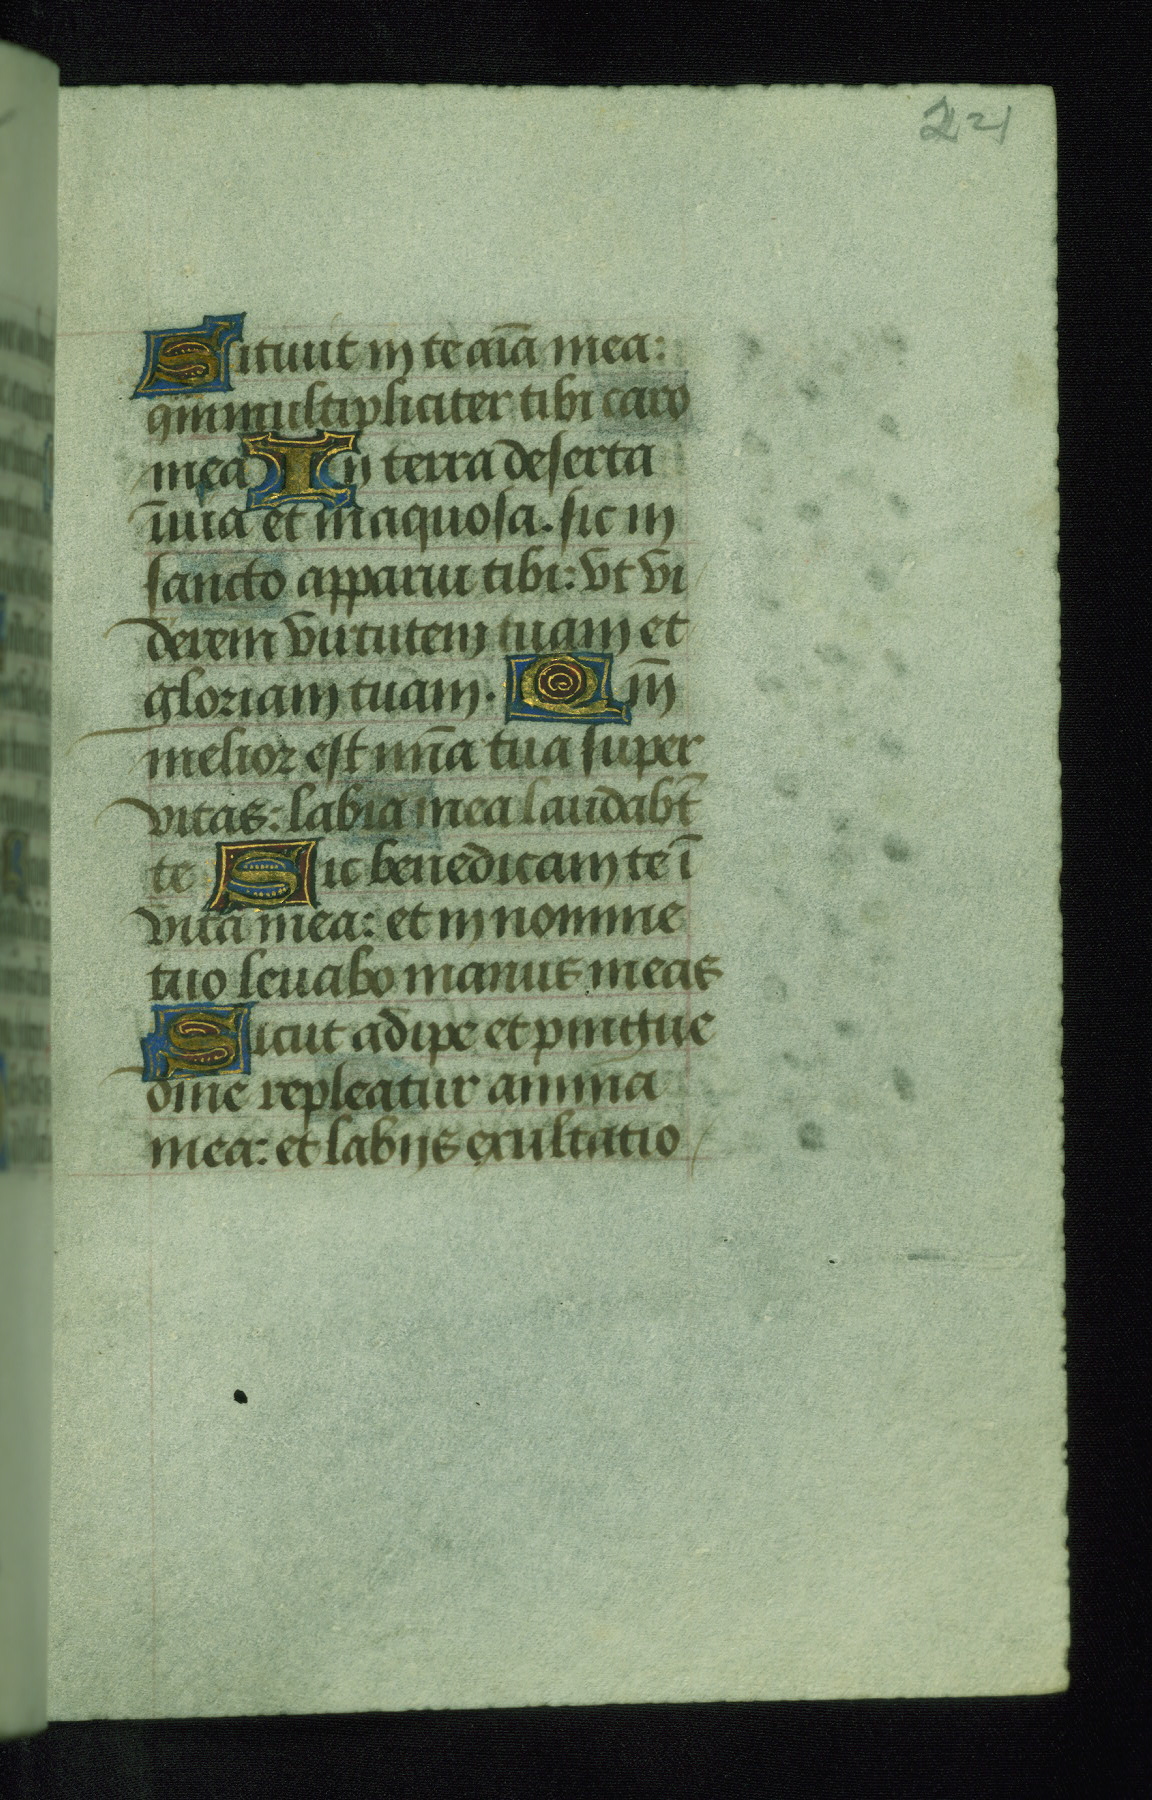 221
Sitiuit in te aīa mea:
qm̄ multipliciter tibi caro
mea In terra deserta
īuia et inaquosa. sic in
sancto apparui tibi: vt vi
derem virtutem tuam et
gloriam tuam. Qm̄
melior est mīa tua super
vitas: labia mea laudabt̄
te Sic benedicam te ī
vita mea: et in nomine
tuo leuabo manus meas
Sicut adipe et pingue
dine repleatur anima
mea: et labijs exultatio